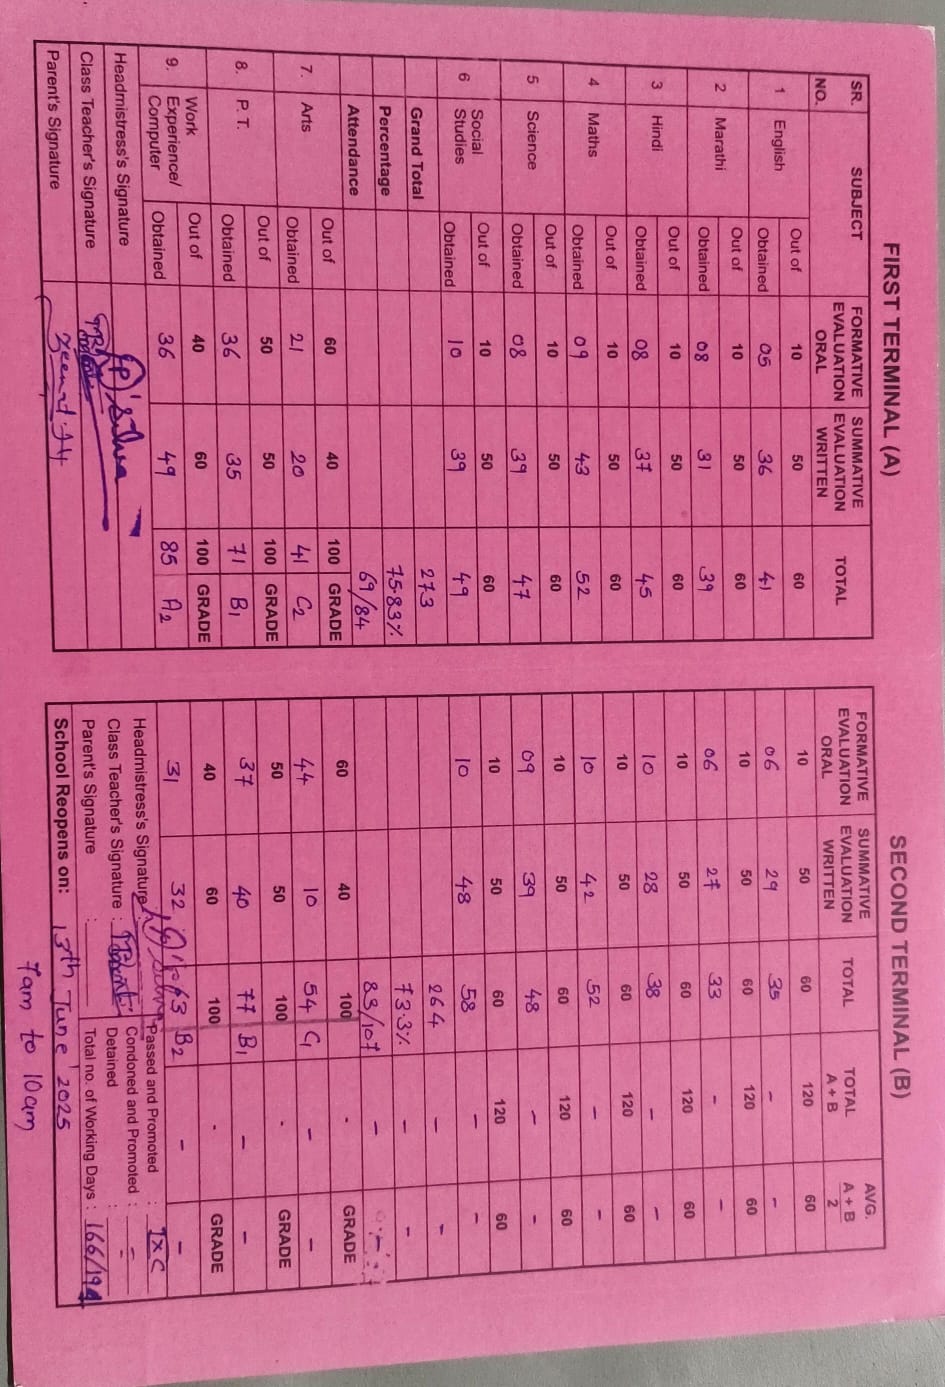 FIRST TERMINAL (A)
SR. NO. SUBJECT FORMATIVE EVALUATION ORAL SUMMATIVE EVALUATION WRITTEN TOTAL
Out of 10 50 60
1 English Obtained 05 36 41
Out of 10 50 60
2 Marathi Obtained 08 31 39
Out of 10 50 60
3 Hindi Obtained 08 37 45
Out of 10 50 60
4 Maths Obtained 09 43 52
Out of 10 50 60
5 Science Obtained 08 39 47
Out of 10 50 60
6 Social Studies Obtained 10 39 49
Grand Total 273
Percentage 75.83%
Attendance 69/84
Out of 60 40 100 GRADE
7. Arts Obtained 21 20 41 C2
Out of 50 50 100 GRADE
8. P.T. Obtained 36 35 71 B1
Out of 40 60 100 GRADE
9. Work Experience/ Computer Obtained 36 49 85 A2
Headmistress's Signature
Class Teacher's Signature
Parent's Signature
SECOND TERMINAL (B)
FORMATIVE EVALUATION ORAL SUMMATIVE EVALUATION WRITTEN TOTAL TOTAL A + B AVG. A + B 2
10 50 60 120 60
06 29 35 - -
10 50 60 120 60
06 27 33 - -
10 50 60 120 60
10 28 38 - -
10 50 60 120 60
10 42 52 - -
10 50 60 120 60
09 39 48 - -
10 50 60 120 60
10 48 58 - -
264 - -
73.3% - -
83/107 -
60 40 100 - GRADE
44 10 54 C1 - -
50 50 100 - GRADE
37 40 77 B1 - -
40 60 100 - GRADE
31 32 63 B2 - -
Headmistress's Signature Passed and Promoted : IXC
Class Teacher's Signature : Condoned and Promoted : -
Detained -
Parent's Signature : Total no. of Working Days : 166/194
School Reopens on: 13th June 2025
7am to 10am